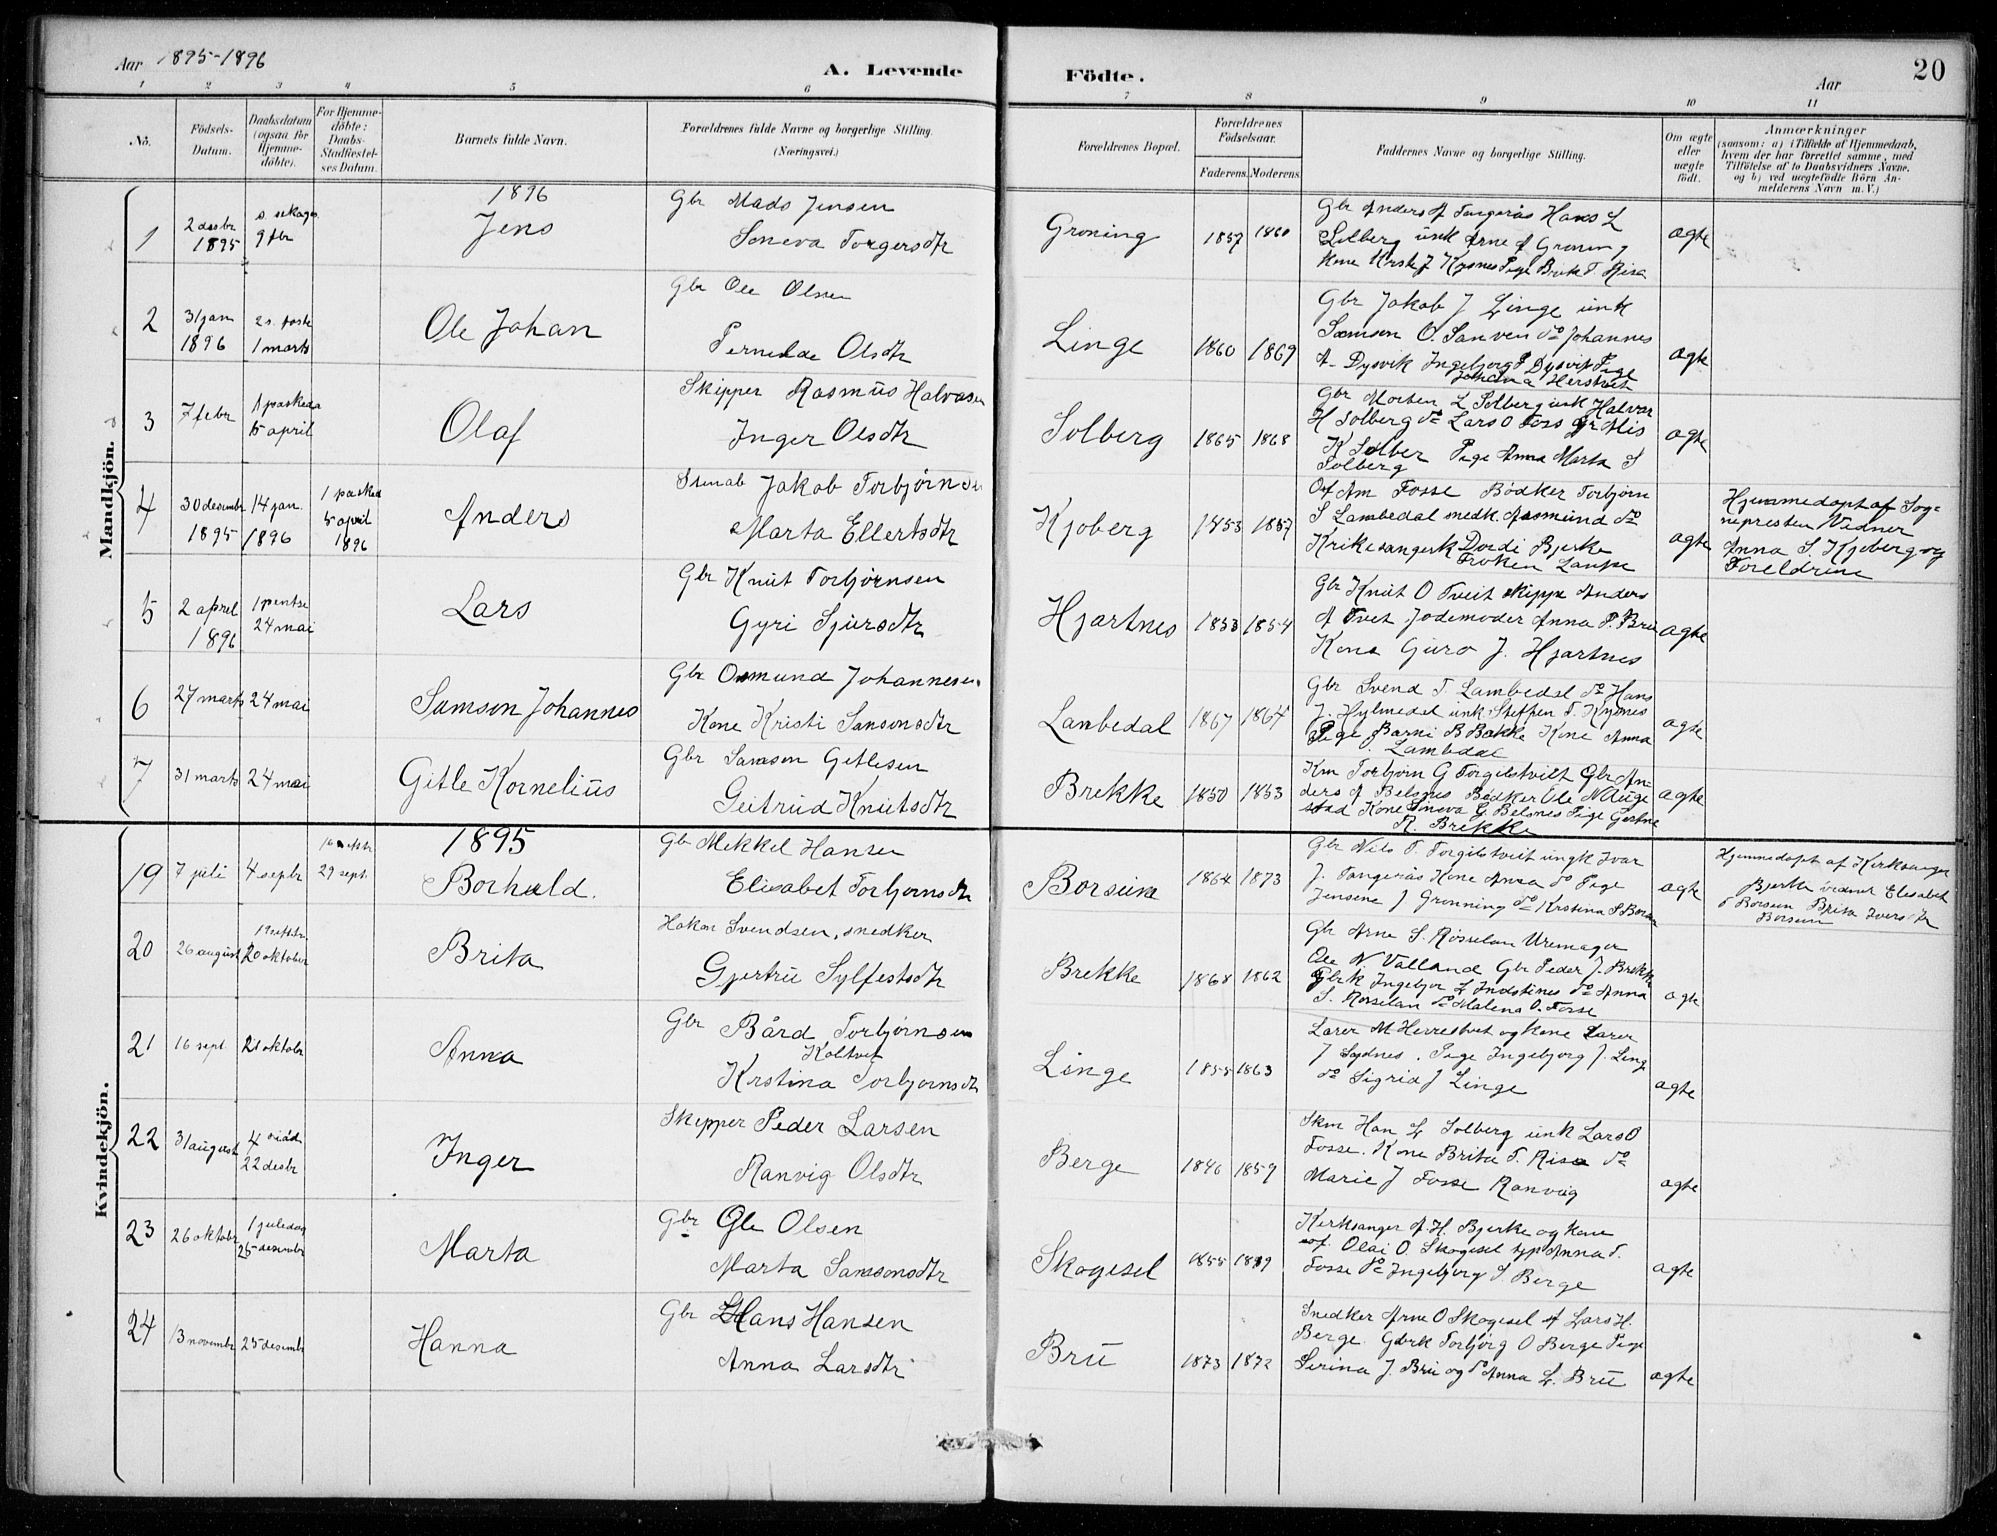 Aar 1895-1896
A. Levende
Födte.
Aar
20
1 2 3 4 5 6 7 8 9 10 11
No.
Födsels-Datum.
Daabsdatum (ogsaa for Hjemmedöbte).
For Hjemmedöbte: Daabs-Stadfæstelses Datum.
Barnets fulde Navn.
Forældrenes fulde Navne og borgerlige Stilling. (Næringsvei.)
Forældrenes Bopæl.
Forældrenes Födselsaar.
Faderens. Moderens.
Faddernes Navne og borgerlige Stilling.
Om ægte eller uægte födt.
Anmærkninger
(saasom: a) i Tilfælde af Hjemmedaab, hvem der har forrettet samme, med Tilföielse af to Daabsvidners Navne. og b) ved uægtefödte Börn Anmelderens Navn m. V.)
Mandkjön.
1896
1
2 desbr 1895
9 fbr
Jens
Gbr Mads Jensen
Soneva Torgersdtr
Groning
1857 1860
Gbr Anders A Tangerås Hans L
Solberg unk Arne A Groning
Kone J Kysnes Pige Brite T. Risa
agte
2
31 jan 1896
2 s. faste
1 marts
Ole Johan
Gbr Ole Olsen
Pernilde Olsdtr
Linge
1860 1869
Gbr Jakob J Linge unk
Samson O. Sanven do Johannes
A- Dysvik Ingeborg P Dysvik Pige
Johana Herstveit
agte
3
7 febr
1 paskeda
5 april
Olaf
Skipper Rasmus Halvasen
Inger Olsdtr
Solberg
1865 1868
Gbr Morten L Solberg unk Halvar
H Solberg do Lars O Foss
K Solber Pige Anna Marta S
Solberg
agte
4
30 desembr 1895
14 jan. 1896
1 pasked
5 april 1896
Anders
Jakob Torbjørnsen
Marta Ellertsdtr
Kjoberg
1853 1857
Fosse Bødker Torbjørn
S Lambedal snedk. Aasmund do
Krikesangerk Dordi Bjerke
Froken Lampe
agte
Hjemmedøpt af Sog-
nepresten Vedner
Anna S. Kjoberg og
Foreldrene
5
2 aprel 1896
1 pentse
24 mai
Lars
Gbr Knut Torbjørnsen
Gyri Sjursdtr
Hjartnes
1853 1854
Gbr Knut O Tveit skippr Anders
A Tvet Jodemoder Anna P. Bru
Kona Guro J. Hjartnes
agte
6
27 marts
24 mai
Samson Johannes
Gbr Osmund Johannesen
Kone Kristi Sansonsdtr
Lambedal
1867 1864
Gbr Svend T. Lambedal do Hans
J. Hylmedel unk Steffen T. Kysnes
Pige Barni B Bakke Kone Anna
Lambedal
agte
7
31 marts
24 mai
Gitle Kornelius
Gbr Samson Gitlesen
Geitrud Knutsdtr
Brekke
1850 1853
Km Torbjørn G Torgilstveit Gbr An-
ders A Belsnes Bødker Ole N Auge
stad Kone Sineva G. Belsnes Pige
R. Brekke
agte
Kvindekjön.
1895
19
7 juli
4 septbr
29 sept.
Borhild.
Gbr Mekkel Hansen
Elisabet Torbjornsdtr
Borsun
1864 1873
Gbr Nils T. Torgilstveit ungk Ivar
J. Tangerås Kone Anna do Pige
Jensene J Gronning do Krstina S Borsun
agte
Hjemmedøpt af Kirksanger
Bjerke vidner Elisabet
T Borsun Brita Iversdtr
Borsun
20
26 august
20 oktober
Brita
Hakon Svendsen, snedker
Gjertru Sylfestsdtr
Brekke
1868 1862
Gbr Arne S. Røsselan Uremager
Ole N Valland Gbr Peder J. Brekk
Gbrk Ingebjor L Indstenes do Anna
S. Rosselan do Malena O. Fosse
agte
21
16 sept
20 oktobr
Anna
Gbr Bård Torbjørnsen
Koltvet
Krstina Torbjornsdtr
Linge
1855 1863
Larer M Herrestvet og kone Larer
J Sydnes. Pige Ingebjorg J. Linge
do Sigrid J Linge
agte
22
31 august
4 
22 desbr
Inger
Skipper Peder Larsen
Ranvig Olsdtr
Berge
1846 1859
Skm Han L Solberg unk Lars O
Fosse. Kone Brita T. Risa do
Marie J Fosse Ranveig
agte
23
26 oktobr
1 juledag
25 desembr
Marta
Gbr Ole Olsen
Marta Samsonsdtr
Skogesel
1855 1859
Kerksanger A. H. Bjerke og kone
Olai O. Skogesel Anna T.
Fosse do Ingebjorg S. Berge
agte
24
13 novembr
25 desembr
Hanna
Gbr Hans Hansen
Anna Larsdtr
Bru
1873 1872
Snedker Arne O Skogesel A Lars H.
Berge. Gbrk Torbjørg O Berge Pige
Serina J. Bru og do Anna L. Bru
agte